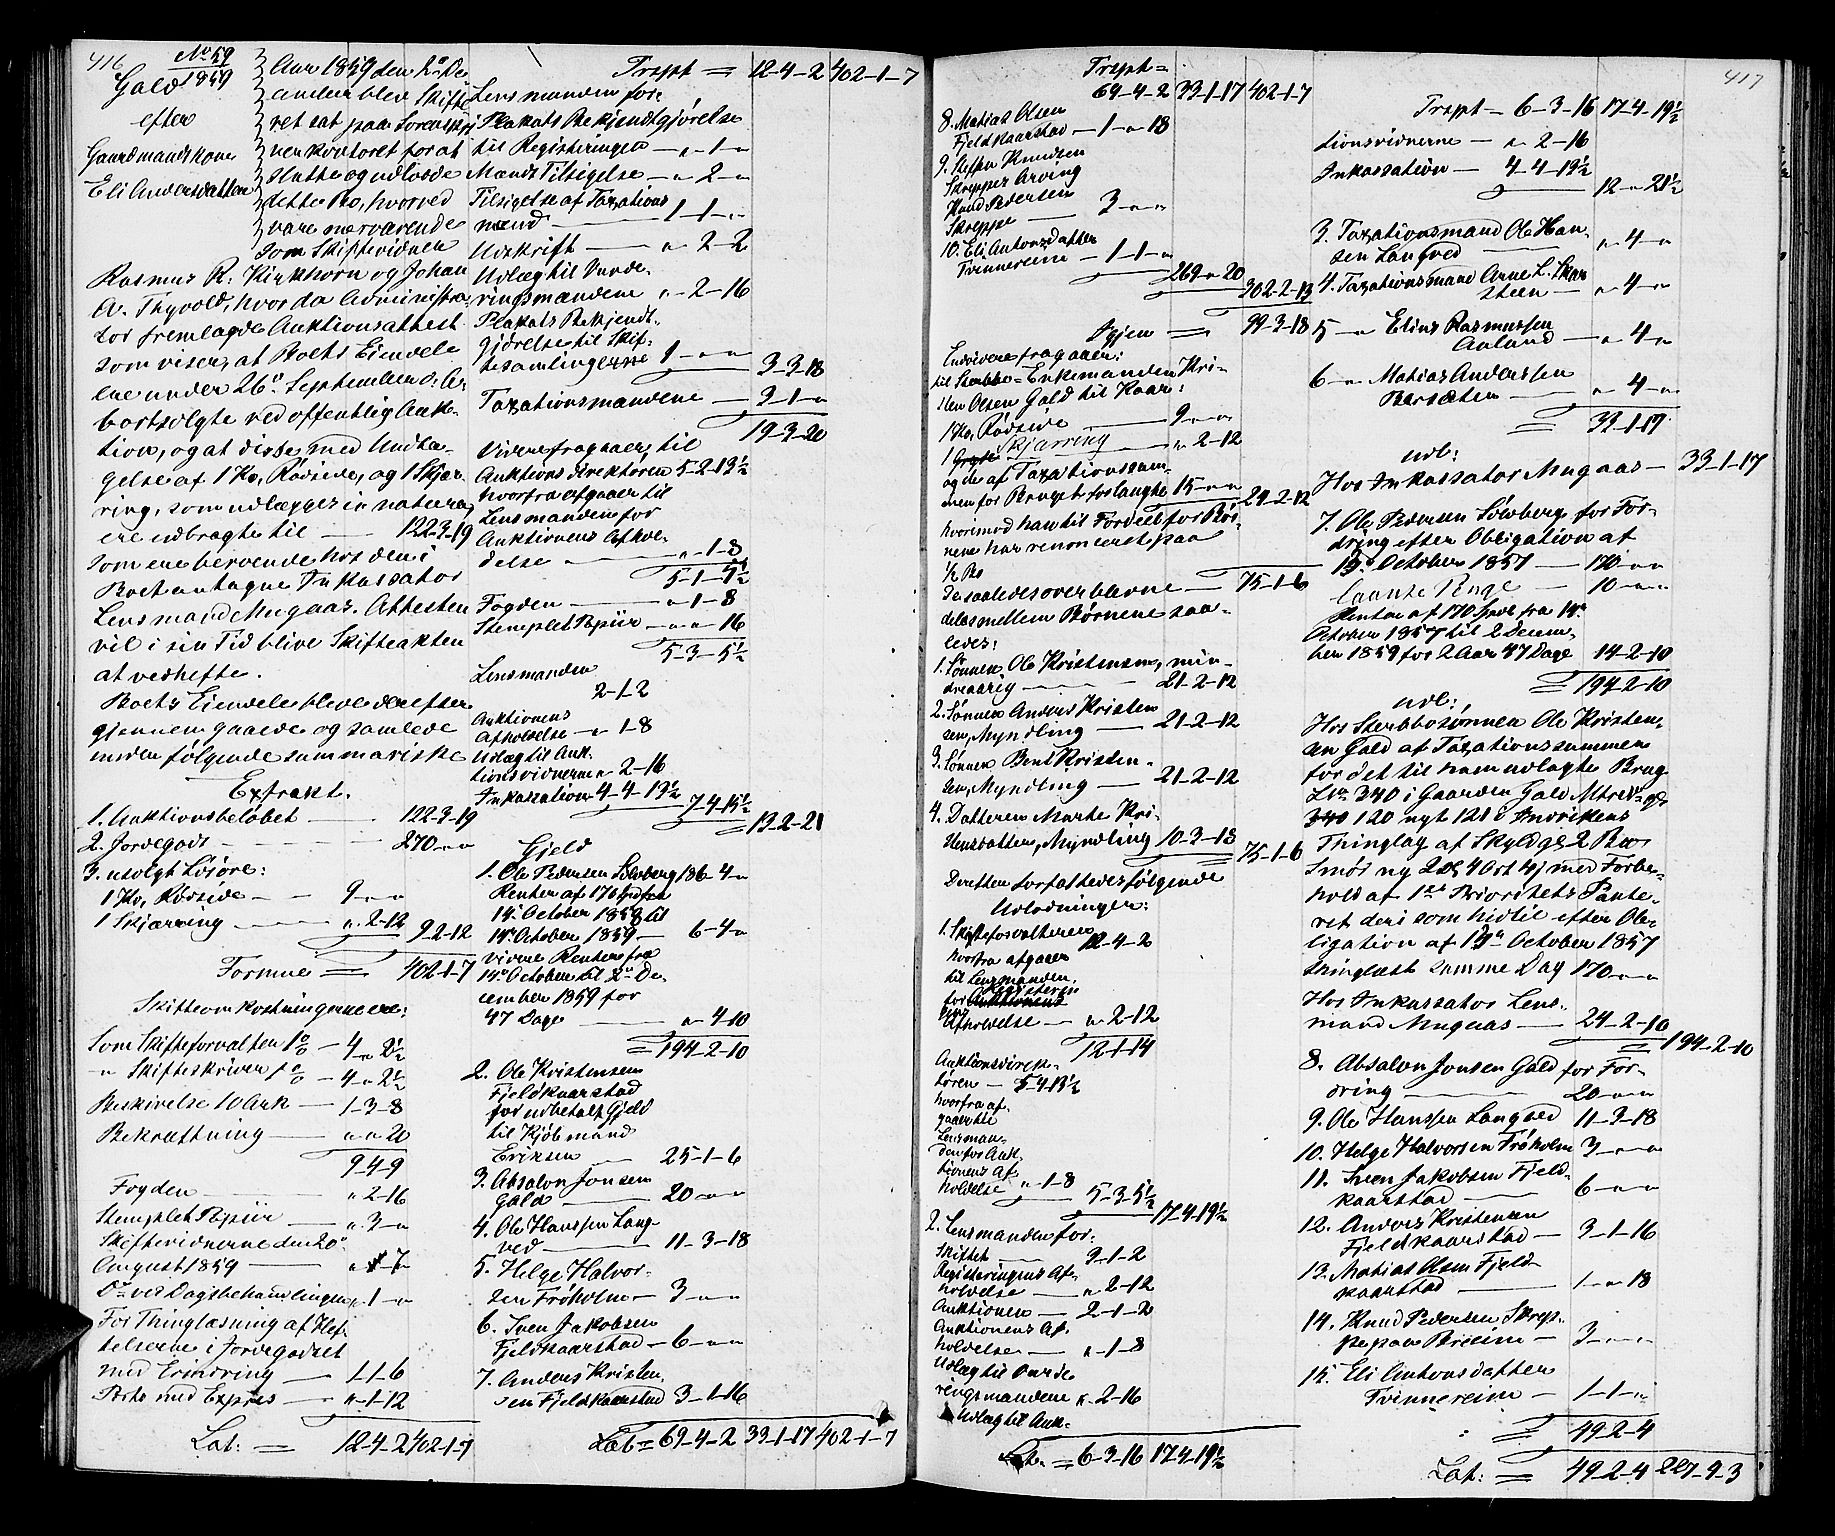 416
No 59
1859
Gald
efter
Gaardmandskone
Eli Andersdatter
Aar 1859 den 2n De
cember blev Skifte
ret sat paa Sorenskri
verkontoret for at
slutte og udlodde
dette Bo, hvorved
vare nærværende
som Skiftevidner
Rasmus R. Kirkhorn og Johan
A. Thyvold, hvor da Administra
tor fremlagde Auktionsattest
som viser, at Boets Eiendele
ere under 26n September d. A.
bortsolgte ved offentlig Auk-
tion, og at disse med Undta-
gelse af 1 Ko, Rødside, og 1 Skjær
ring, som udlægges in natura,
ere udbragte til — 122-3-19
som ere beroende hos den i
Boet antagne Inkassator
Lensmand Mugaas. Attesten
vil i sin Tid blive Skifteakten
at vedhefte.
Boets Eiendele bleve derefter
gjennemgaaede og samlede
under følgende summariske
Extrakt.
1. Auktionsbeløbet — 122-3-19
2. Jordegods — 270-"-"
3. usolgt Løsøre:
1 Ko, Rødside — 9-"-"
1 Skjærring — "-2-12
9-2-12
Formue = 402-1-7
Skifteomkostningerne ere:
Som Skifteforvalter 1 % — 4-"-2½
" Skifteskriver 1 % — 4-"-2½
Beskrivelse 10 Ark — 1-3-8
Bekræftning — "-"-20
9-4-9
Fogden — "-2-16
Stemplet Papiir — "-3-"
Skiftevidnerne den 20n
August 1859 — "-1-"
Do ved Dagsbehandlingen "-1-"
For Thinglæsning af Hef-
telserne i Jordegodset
med Erindring — 1-1-6
Porto med Expres — "-1-12
Lat: = 12-4-2 402-1-7
Trspt = 12-4-2 402-1-7
Lensmanden for:
Plakats Bekjendtgjørelse
til Registeringen — "-1-"
Mænds Tilsigelse — "-2-"
Tilsigelse af Taxations
mænd — 1-1-"
Udskrift — "-2-2
Udlæg til Vurde-
ringsmændene "-2-16
Plakats Bekjendt-
gjørelse til Skif-
tesamlingerne 1-"-"
3-3-18
Taxationsmændene — 3-1-"
19-3-20
Videre fragaaer, til
Auktionsdirektøren 5-2-13½
hvorfra afgaaer til
Lensmanden for
Auktionens Afhol-
delse — "-1-8
5-1-5½
Fogden — "-1-8
Stemplet Papiir — "-"-16
5-3-5½
Lensmanden
2-1-2
Auktionens
Afholdelse — "-1-8
Udlæg til Auk-
tionsvidnerne "-2-16
Inkassation 4-4-13½
7-4-15½
= 13-2-21
Gjeld
1. Ole Pedersen Solvberg 186-4-"
Renter af 170 Spd fra
14n October 1858 til
14n October 1859 — 6-4-"
videre Renter fra
14n October til 2n De
cember 1859 for
47 Dage — "-4-10
= 194-2-10
2. Ole Kristensen
Fjeldkaarstad
for udbetalt Gjeld
til Kjøbmand
Eriksen — 25-1-6
3. Absalon Jonsen
Gald — 20-"-"
4. Ole Hanssen Lang-
ved — 11-3-18
5. Helge Halvor-
sen Frøholm — 3-"-"
6. Sven Jakobsen
Fjeldkaarstad — 6-"-"
7. Anders Kristen
sen Fjeldkaarstad 3-1-16
Lat = 69-4-2 33-1-17 402-1-7
Trspt =
69-4-2 33-1-17 402-1-7
8. Matias Olsen
Fjeldkaarstad — 1-"-18
9. Steffen Knudsen
Skreppes Arving
Knud Pedersen
Skreppe — 3-"-"
10. Eli Antonsdatter
Tvinnereim — 1-1-"
269-"-20
302-2-13
Igjen = 99-3-18
Endvidere fragaaer:
til Sterbbo-Enkemanden Kri-
sten Olsen Gald til Kaar:
1 Ko, Rødside — 9-"-"
1 Skjærring — "-2-12
og de af Taxationssum-
men for Bruget forlangte 15-"-"
24-2-12
hvorimod han til Fordeel for Bør-
nene har renonceret paa
½ Bo
Da saaledes overblevne — 75-1-6
deles mellem Børnene saa-
ledes:
1. Sønnen Ole Kristensen, min-
dreaarig — 21-2-12
2. Sønnen Anders Kristen
sen, Myndling — 21-2-12
3. Sønnen Bent Kristen-
sen, Myndling — 21-2-12
4. Datteren Marte Kri-
stensdatter, Myndling 10-3-18
75-1-6
Derefter forfattedes følgende
Udlodninger:
1. Skifteforvalteren
12-4-2
hvorfra afgaaer
til Lensmanden
for Registerin
gens
Afholdelse — "-2-12
12-1-14
Auktionsdirek-
tøren — 5-4-13½
hvorfra af-
gaaer til
Lensman-
den for Auk-
tionens Af-
holdelse "-1-8
5-3-5½
17-4-19½
2. Lensmanden for:
Skiftet — 3-1-2
Registeringens Af-
holdelse — "-2-12
Auktionen — 2-1-2
Auktionens Af-
holdelse — "-1-8
Udlæg til Vurde
ringsmændene "-2-16
Udlæg til Auk-
Lat. = 6-3-16 17-4-19½
417
Trspt — 6-3-16 17-4-19½
tionsvidnerne — "-2-16
Inkassation — 4-4-13½
12-"-21½
3. Taxationsmand Ole Han-
sen Langved — "-4-"
4. Taxationsmand Arne L. Skar
steen — "-4-"
5 — " Elias Rasmussen
Aaland — "-4-"
6 — " Matias Anderssen
Bersæten — "-4-"
= 33-1-17
udl:
Hos Inkassator Mugaas — 33-1-17
7. Ole Pedersen Solvberg for For-
dring efter Obligation af
13n October 1857 — 170-"-"
laante Penge — 10-"-"
Renter af 170 Spd fra 14n
October 1857 til 2 Decem-
ber 1859 for 2 Aar 47 Dage 14-2-10
= 194-2-10
udl:
Hos Sterbbosønnen Ole Kristen-
sen Gald af Taxationssummen
for det til ham udlagte Brug
Lno 340 i Gaarden Gald Mtr. No gl.
120 nyt 121 i Indvikens
Thinglag af Skyld gl. 2 Pd
Smør ny 2 Dl 4 Ort 4 s med Forbe-
hold af 1ste Prioritets Pante-
ret deri som hidtil efter Ob-
ligation af 13n October 1857
thinglæst samme Dag 170-"-"
Hos Inkassator Lens-
mand Mugaas — 24-2-10
= 194-2-10
8. Absalon Jonsen Gald for For-
dring — 20-"-"
9. Ole Hanssen Langved 11-3-18
10. Helge Halvorsen Frøholm 3-"-"
11. Sven Jakobsen Fjeld-
kaarstad — 6-"-"
12. Anders Kristensen
Fjeldkaarstad — 3-1-16
13. Matias Olsen Fjeld-
kaarstad — 1-"-18
14. Knud Pedersen Skrep-
pe paa Breim — 3-"-"
15. Eli Antonsdatter
Tvinnereim — 1-1-"
= 49-2-4
Lat: = 49-2-4 257-3-3